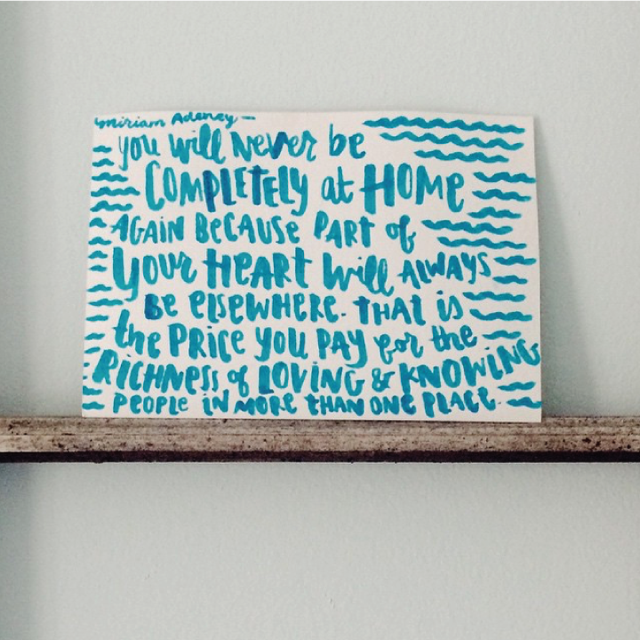 miriam Adeney —
you will Never be
COMPLETELY at HOME
AGAIN BECAUSE PART of
YOUR HEART will ALWAYS
BE ElSEWHERE. THAT is
the PRICE YOU PAY for the
RICHNESS of LOVING & KNOWING
PEOPLE iN MORE THAN ONE PLACE.